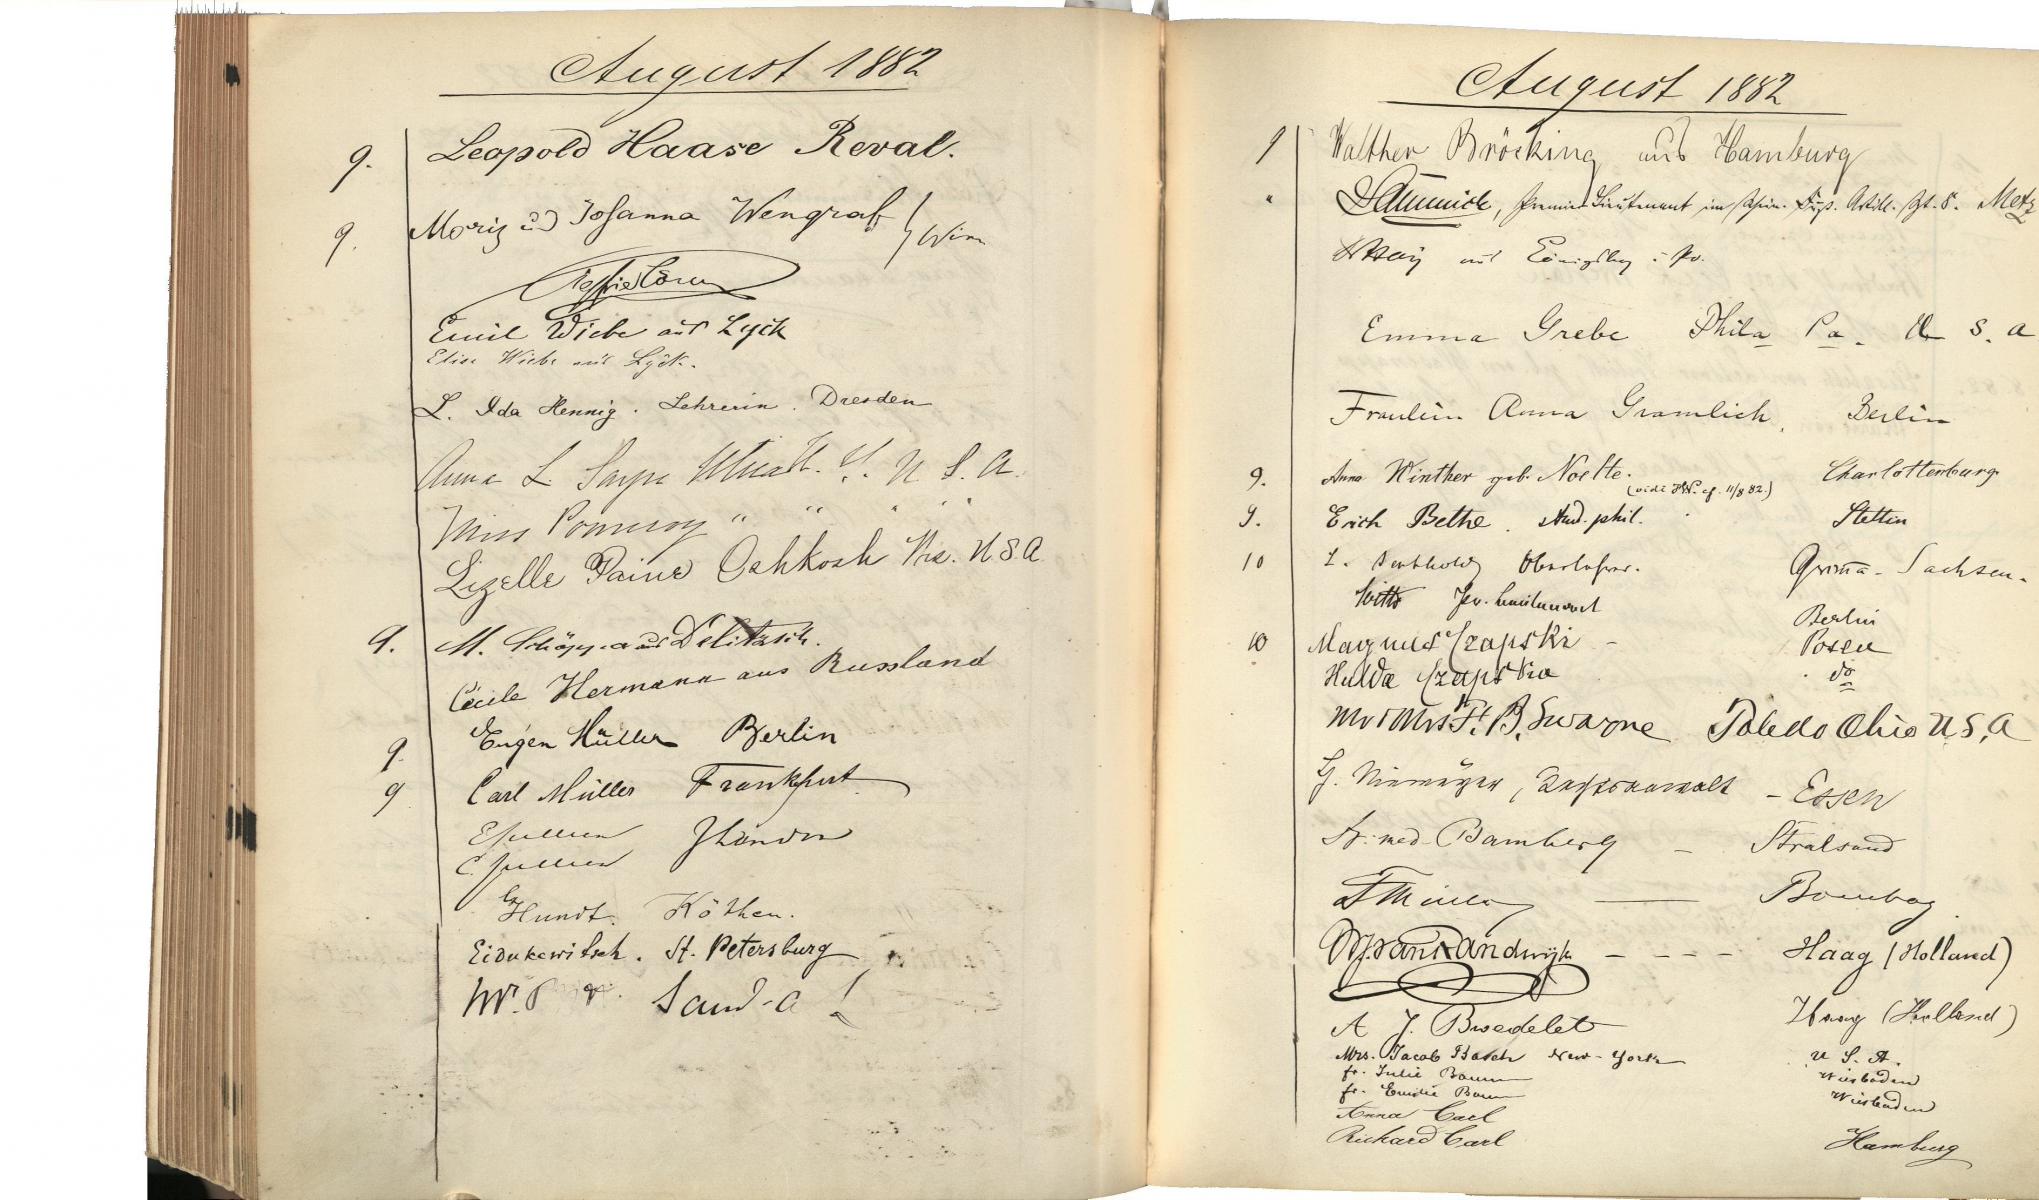 August 1882
9. Leopold Haase Reval.
9. Moriz und Johanna Wengraf } Wien
Emil Wiebe aus Lyck
Elise Wiebe aus Lyck.
L. Ida Hennig. Lehrerin. Dresden
Anna L. N. Y. U S. A.
Miss Pomeroy " " " "
Lizelle Paine Oshkosh Wis. U S. A
9. M. aus Delitzsch.
Cécile Hermann aus Russland
9. Eugen Müller Berlin
9 Carl Müller Frankfurt
E Jullien London
C. Jullien
Hundt. Köthen.
Eidukewitsch. St. Petersburg
August 1882
9 Walther Bröcking aus Hamburg
" Premier Lieutenant im Artill. Metz
aus
Emma Grebe Phila Pa. U S. A
Fraulein Anna Gramlich, Berlin
9. Anna Winther geb. Noelte. Charlottenburg.
(vidi 11/8 82.)
9. Erich Bethe. stud. phil. Stettin
10 Berthold, Oberlehrer. Grimma - Sachsen.
Witte Berlin
10 Magnus Czapski - Posen
Hulda Czapska do
Mr & Mrs F. B. Swayne Toledo Ohio U. S. A
G. Niemeyer, Rechtsanwalt - Essen
Dr. med. Bamberg - Stralsund
— Bombay
van Randwijk - - - - Haag (Holland)
A J. Haag (Holland)
Mrs. Jacob Basch New-York U. S. A.
fr. Julie Baum Wiesbaden
fr. Emilie Baum Wiesbaden
Anna Carl
Richard Carl Hamburg